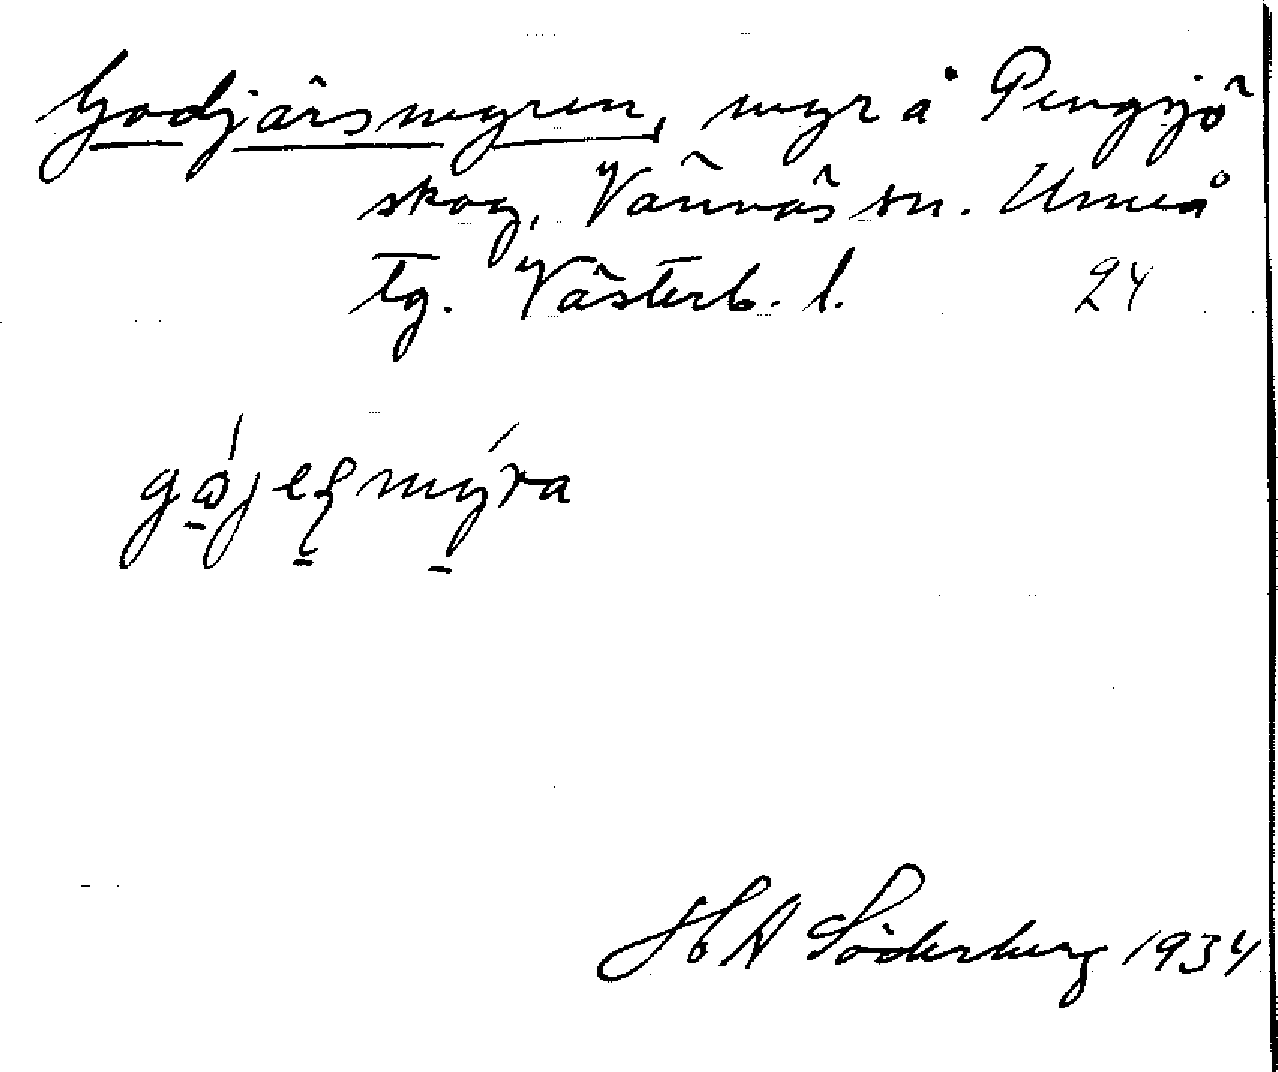 Godjärsmyren, myr å Pengsjö
skog, Vännäs sn. Umeå
tg. Västerb. l. 24
H A Söderberg 1934